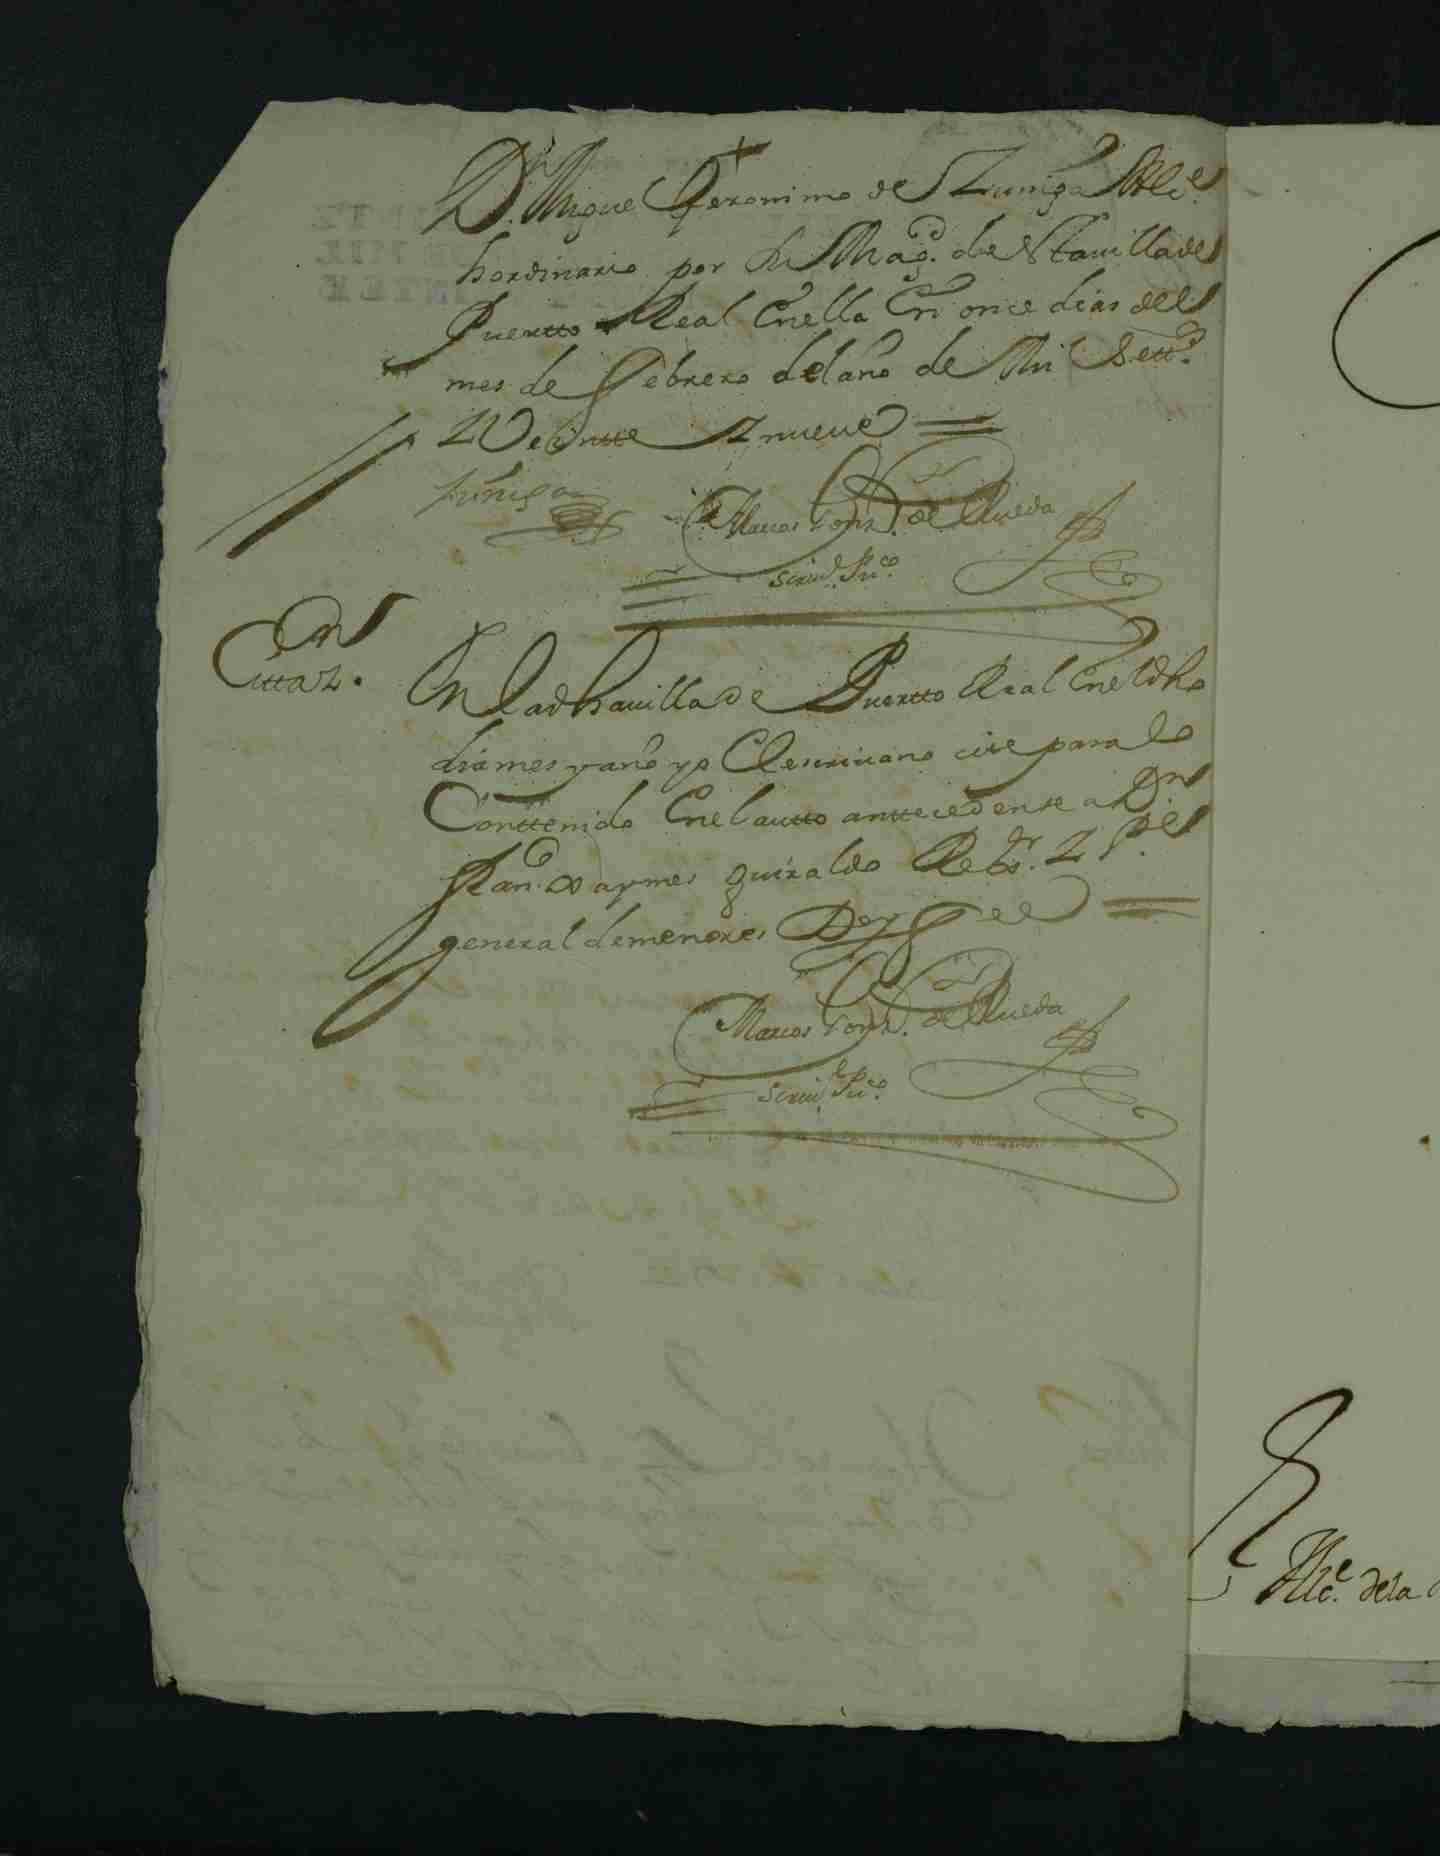 Dn. Miguel Geronimo de Zuniga Alce.
hordinario por su Magd. de esta villa de
Puertto Real Enella En once dias del
mes de febrero del año de Mil Settd.
Veintte Y nueve
Zuniga
Marcos Gonz. de Rueda
Scriud. Puco.
Cittaz.on
En la dha villa de Puertto Real Enel dho
dia mes y año yo el escriuano cite para lo
Conttenido Enel autto anttecedente a Dn
Fran.co Jaymes guiraldo Rex.dr Y P.e
general de menores Doy fee
Marcos Gonz. de Rueda
Scriud. Puco.
Alce. dela